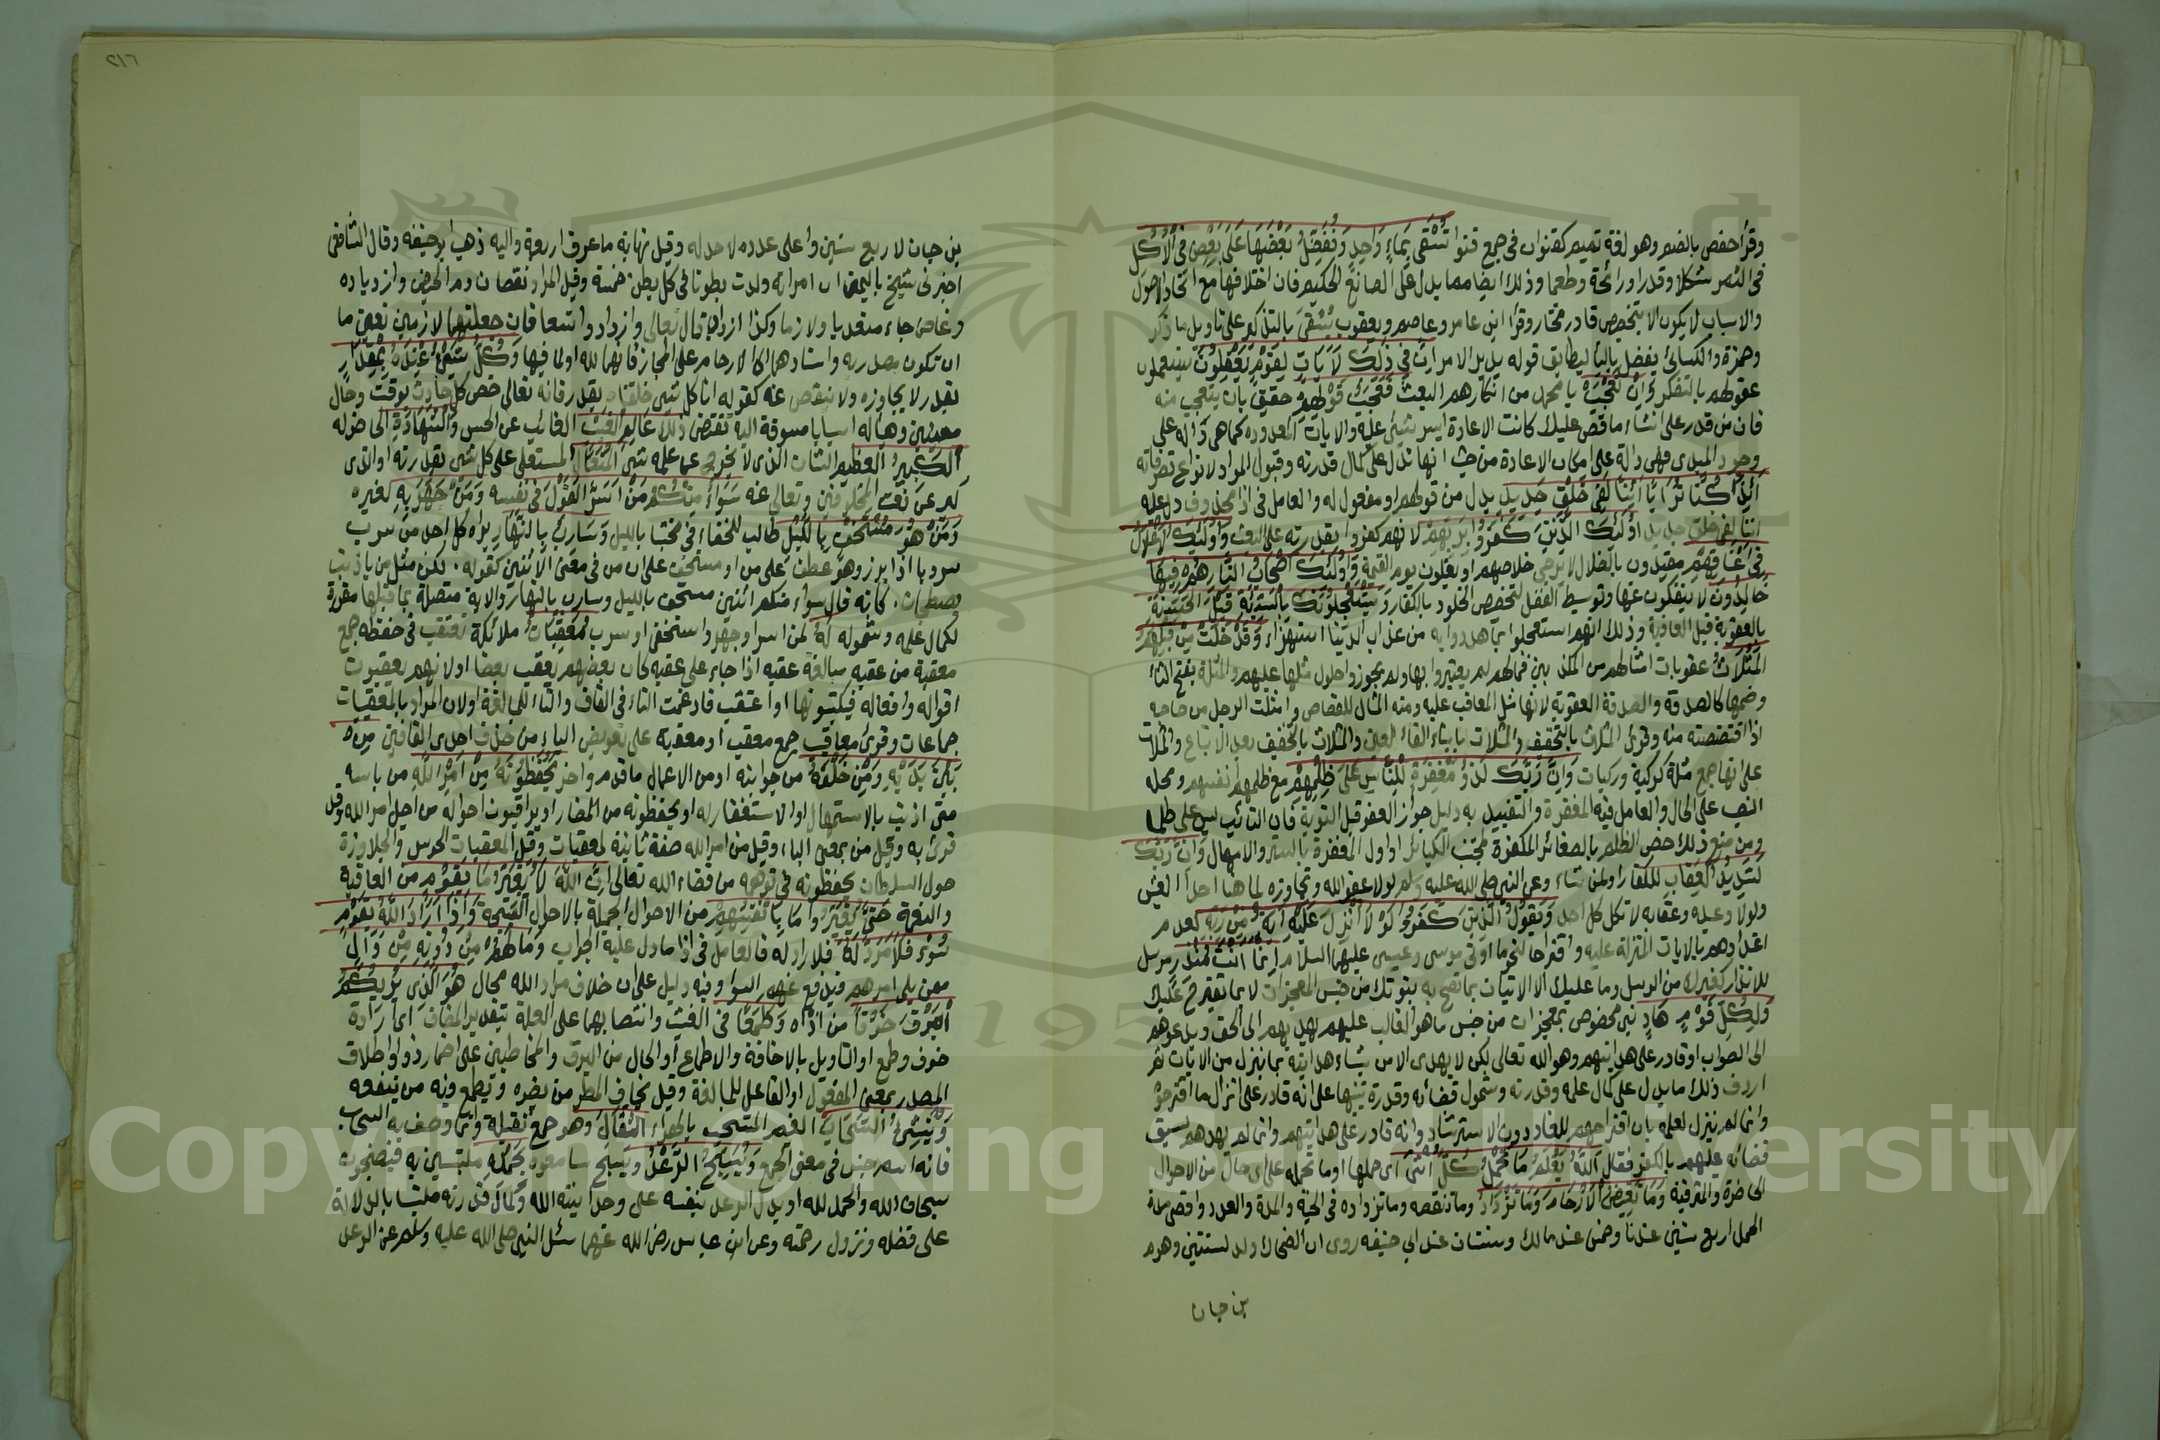 وقرأ حفص بالضم وهو لغة تميم كقنوان في جمع قنو تُسْقَى بِمَاءٍ وَاحِدٍ وَنُفَضِّلُ بَعْضَهَا عَلَى بَعْضٍ فِي الْأُكُلِ
في الثمر شكلا وقدرا ورائحة وطعما وذلك ايضا مما يدل على الصانع الحكيم فان اختلافها مع اتحاد الاصول
والاسباب لا يكون الا بتخصيص قادر مختار وقرأ ابن عامر وعاصم ويعقوب يُسْقَى بالتذكير على تاويل ما ذكر
وحمزة والكسائي يفضل بالياء ليطابق قوله يدبر الامر اِنَّ فِي ذَلِكَ لَآيَاتٍ لِقَوْمٍ يَعْقِلُونَ يستعملون
عقولهم بالتفكر وَاِنْ تَعْجَبْ يا محمد من انكارهم البعث فَعَجَبٌ قَوْلُهُمْ حقيق بان يتعجب منه
فان من قدر على انشاء ما قص عليك كانت الاعادة ايسر شيئ عليه والايات المعدودة كما هي دالة على
وجود المبدئ فهي دالة على امكان الاعادة من حيث انها تدل على كمال قدرته وقبول المواد لانواع تصرفاته
أَئِذَا كُنَّا تُرَابًا أَئِنَّا لَفِي خَلْقٍ جَدِيدٍ بدل من قولهم او مفعول له والعامل في اذا محذوف دل عليه
ائنا لفي خلق جديد اُولَئِكَ الَّذِينَ كَفَرُوا بِرَبِّهِمْ لانهم كفروا بقدرته على البعث وَاُولَئِكَ الْاَغْلَالُ
فِي اَعْنَاقِهِمْ مقيدون بالضلال لا يرجى خلاصهم او يغلون يوم القيمة وَاُولَئِكَ اَصْحَابُ النَّارِ هُمْ فِيهَا
خَالِدُونَ لا ينفكون عنها وتوسيط الفصل لتخصيص الخلود بالكفار وَيَسْتَعْجِلُونَكَ بِالسَّيِّئَةِ قَبْلَ الْحَسَنَةِ
بالعقوبة قبل العافية وذلك انهم استعجلوا بما هددوا به من عذاب الدنيا استهزاء وَقَدْ خَلَتْ مِنْ قَبْلِهِمُ
الْمَثُلَاتُ عقوبات امثالهم من المكذبين فما لهم لم يعتبروا بها ولم يجوزوا حلول مثلها عليهم والمثلة بفتح الثاء
وضمها كالصدقة والصدقة العقوبة لانها مثل المعاقب عليه ومنه المثال للقصاص وامثلت الرجل من صاحبه
اذا اقتصصته منه وقرئ المثلات بالتخفيف والمثلات باتباع الفاء العين والمثلات بالتخفيف بعد الاتباع والمثلات
على انها جمع مثلة كركبة وركبات وَاِنَّ رَبَّكَ لَذُو مَغْفِرَةٍ لِلنَّاسِ عَلَى ظُلْمِهِمْ مع ظلمهم انفسهم ومحله
النصب على الحال والعامل فيه المغفرة والتقييد به دليل جواز العفو قبل التوبة فان التائب ليس على ظلمه
ومن منع ذلك خص الظلم بالصغائر المكفرة لمجتنب الكبائر او اول المغفرة بالستر والامهال وَاِنَّ رَبَّكَ
لَشَدِيدُ الْعِقَابِ للكفار او لمن شاء وعن النبي صلى الله عليه وسلم لولا عفو الله وتجاوزه لما هنا احدا العيش
ولولا وعيده وعقابه لاتكل كل احد وَيَقُولُ الَّذِينَ كَفَرُوا لَوْلَا اُنْزِلَ عَلَيْهِ آيَةٌ مِنْ رَبِّهِ لعدم
اعتدادهم بالايات المنزلة عليه واقتراحا لنحو ما اوتي موسى وعيسى عليهما السلام اِنَّمَا اَنْتَ مُنْذِرٌ مرسل
للانذار كغيرك من الرسل وما عليك الا الاتيان بما تصح به نبوتك من جنس المعجزات لا بما تقترح عليك
وَلِكُلِّ قَوْمٍ هَادٍ نبي مخصوص بمعجزات من جنس ما هو الغالب عليهم يهديهم الى الحق ويدعوهم
الى الصواب او قادر على هدايتهم وهو الله تعالى لكن لا يهدي الا من يشاء هدايته بما ينزل من الايات ثم
اردف ذلك ما يدل على كمال علمه وقدرته وشمول قضائه وقدره تنبيها على انه قادر على انزال ما اقترحوه
وانما لم ينزل لعلمه بان اقتراحهم للعناد دون الاسترشاد وانه قادر على هدايتهم وانما لم يهدهم لسبق
قضائه عليهم بالكفر فقال اَللهُ يَعْلَمُ مَا تَحْمِلُ كُلُّ اُنْثَى اي حملها او ما تحمله على اي حال من الاحوال
الحاضرة والمترقبة وَمَا تَغِيضُ الْاَرْحَامُ وَمَا تَزْدَادُ وما تنقصه وما تزداده في الجثة والمدة والعدد واقصى مدة
الحمل اربع سنين عندنا وخمس عند مالك وسنتان عند ابي حنيفه روي ان الضحاك ولد لسنتين وهرم
بن حيان
بن حيان لاربع سنين واعلى عدده لا حد له وقيل نهاية ما عرف اربعة واليه ذهب ابو حنيفه وقال الشافعي
اخبرني شيخ باليمن ان امراته ولدت بطونا في كل بطن خمسة وقيل المراد نقصان دم الحيض وازدياده
وغاض جاء متعديا ولازما وكذا ازداد قال تعالى وازدادوا تسعا فان جعلتهما لازمين تعين ما
ان تكون مصدرية واسنادهما الى الارحام على المجاز فانهما لله او لما فيها وَكُلُّ شَيْءٍ عِنْدَهُ بِمِقْدَارٍ
بقدر لا يجاوزه ولا ينقص عنه كقوله انا كل شئ خلقناه بقدر فانه تعالى خص كل حادث بوقت وحال
معينين وهيأ له اسبابا مسوقة اليه تقتضي ذلك عَالِمُ الْغَيْبِ الغائب عن الحس وَالشَّهَادَةِ الحاضر له
اَلْكَبِيرُ العظيم الشان الذي لا يخرج عن علمه شئ اَلْمُتَعَالِ المستعلي على كل شئ بقدرته او الذي
كبر عن نعت المخلوقين وتعالى عنه سَوَاءٌ مِنْكُمْ مَنْ اَسَرَّ الْقَوْلَ في نفسه وَمَنْ جَهَرَ بِهِ لغيره
وَمَنْ هُوَ مُسْتَخْفٍ بِاللَّيْلِ طالب للخفاء في مختبا بالليل وَسَارِبٌ بِالنَّهَارِ يراه كل احد من سرب
سروبا اذا برز وهو عطف على من او مستخف على ان من في معنى الاثنين كقوله ۰ نكن مثل من يا ذئب
يصطحبان ۰ كانه قال سواء منكم اثنين مستخف بالليل وسارب بالنهار والاية متصلة بما قبلها مقررة
لكمال علمه وشموله لَهُ لمن اسر او جهر واستخفى او سرب مُعَقِّبَاتٌ ملائكة تعتقب في حفظه جمع
معقبة من عقبه مبالغة عقبه اذا جاء على عقبه كان بعضهم يعقب بعضا او لانهم يعقبون
اقواله وافعاله فيكتبونها او اعتقب فادغمت التاء في القاف والتاء للمبالغة او لان المراد بالمعقبات
جماعات وقرئ معاقيب جمع معقب او معقبة على تعويض الياء من حذف احدى القافين مِنْ
بَيْنِ يَدَيْهِ وَمِنْ خَلْفِهِ من جوانبه او من الاعمال ما قدم واخر يَحْفَظُونَهُ مِنْ اَمْرِ اللهِ من باسه
متى اذنب بالاستمهال او الاستغفار له او يحفظونه من المضار او يراقبون احواله من اجل امر الله وقد
قرئ به وقيل من بمعنى الباء وقيل من امر الله صفة ثانية لمعقبات وقيل المعقبات الحرس والجلاوزة
حول السلطان يحفظونه في توهمه من قضاء الله تعالى اِنَّ اللهَ لَا يُغَيِّرُ مَا بِقَوْمٍ من العافية
والنعمة حَتَّى يُغَيِّرُوا مَا بِاَنْفُسِهِمْ من الاحوال الجميلة بالاحوال القبيحة وَاِذَا اَرَادَ اللهُ بِقَوْمٍ
سُوْءً فَلَا مَرَدَّ لَهُ فلا راد له فالعامل في اذا ما دل عليه الجواب وَمَا لَهُمْ مِنْ دُونِهِ مِنْ وَالٍ
ممن يلي امرهم فيدفع عنهم السوء وفيه دليل على ان خلاف مراد الله محال هُوَ الَّذِي يُرِيكُمُ
الْبَرْقَ خَوْفًا من اذاه وَطَمَعًا في الغيث وانتصابهما على العلة بتقدير المضاف اي ارادة
خوف وطمع او التاويل بالاخافة والاطماع او الحال من البرق والمخاطبين على اضمار ذو او اطلاق
المصدر بمعنى المفعول او الفاعل للمبالغة وقيل يخاف المطر من يضره ويطمع فيه من ينفعه
وَيُنْشِئُ السَّحَابَ الغيم المنسحب بالهواء الثِّقَالَ وهو جمع ثقيلة وانما وصف به السحاب
فانه اسم جنس في معنى الجمع وَيُسَبِّحُ الرَّعْدُ ويسبح سامعوه بِحَمْدِهِ ملتبسين به فيضجون به
سبحان الله والحمد لله او يدل الرعد بنفسه على وحدانية الله وكمال قدرته ملتبسا بالدلالة
على فضله ونزول رحمته وعن ابن عباس رضي الله عنهما سئل النبي صلى الله عليه وسلم عن الرعد
Copyright © King Saud University
195